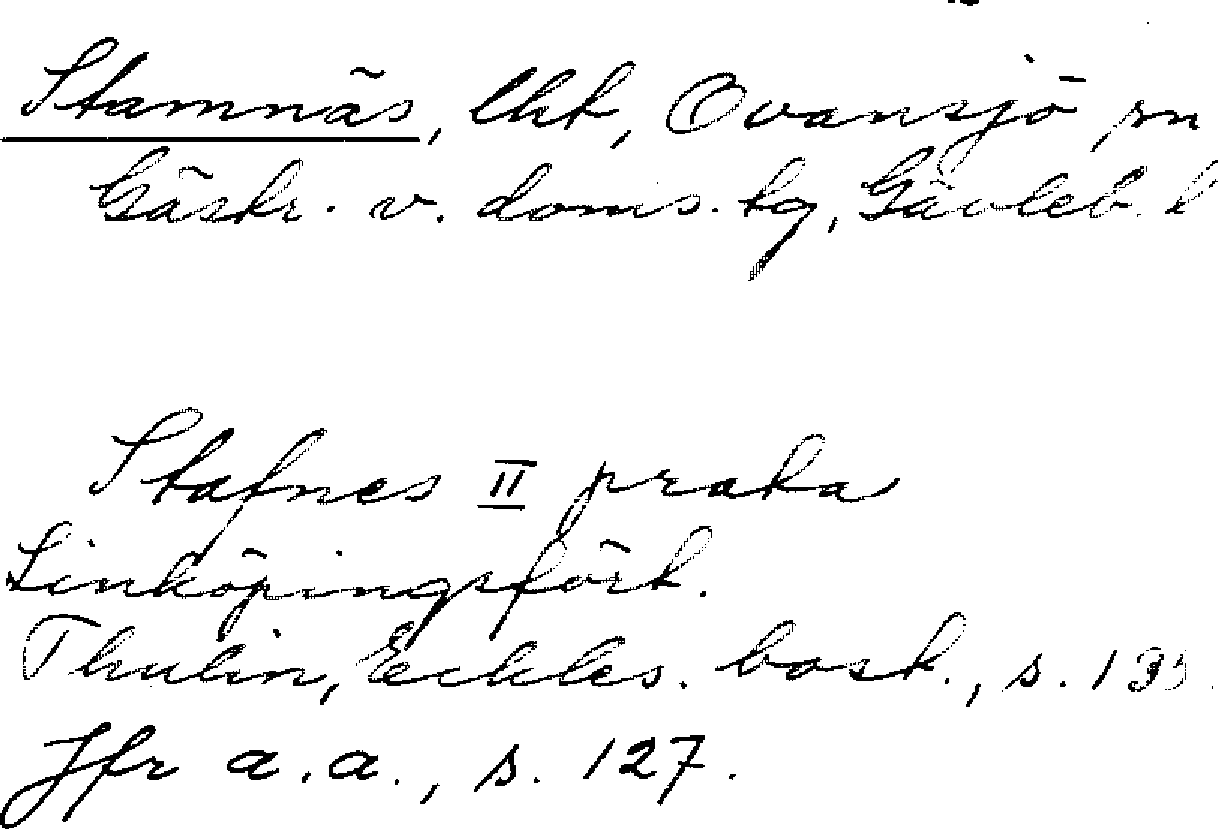 Stamnäs, lht, Ovansjö sn
Gästr. v. doms. tg, Gävleb. l
Stafnes II praka
Linköpingsfört.
Thulin, Eckles. bost., s. 133.
Jfr a.a., s. 127.